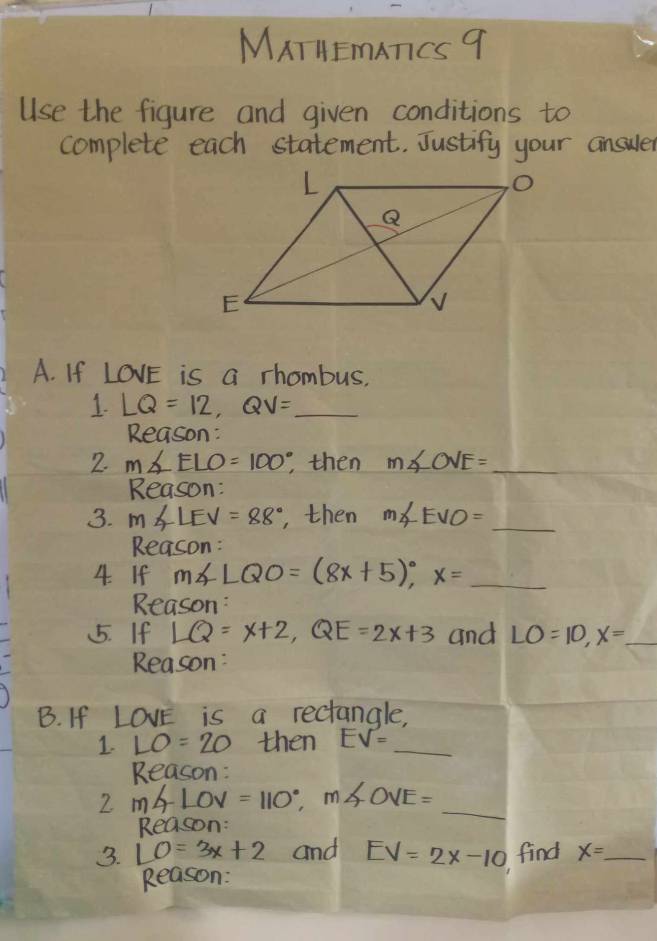 MATHEMATICS 9
Use the figure and given conditions to
complete each statement. Justify your answer
L O
Q
E V
A. If LOVE is a rhombus.
1. LQ = 12, QV=____
Reason:
2. m∡ ELO = 100°, then m∡OVE=____
Reason:
3. m∡LEV = 88°, then m∡EVO = ____
Reason:
4. If m∡LQO = (8x+5)°, x= ____
Reason:
5. If LQ = x+2, QE =2x+3 and LO=10, x=__
Reason:
B. If LOVE is a rectangle,
1. LO = 20 then EV=____
Reason:
2 m∡LOV = 110°, m∡OVE= ____
Reason:
3. LO = 3x+2 and EV = 2x-10, find x=___
Reason: